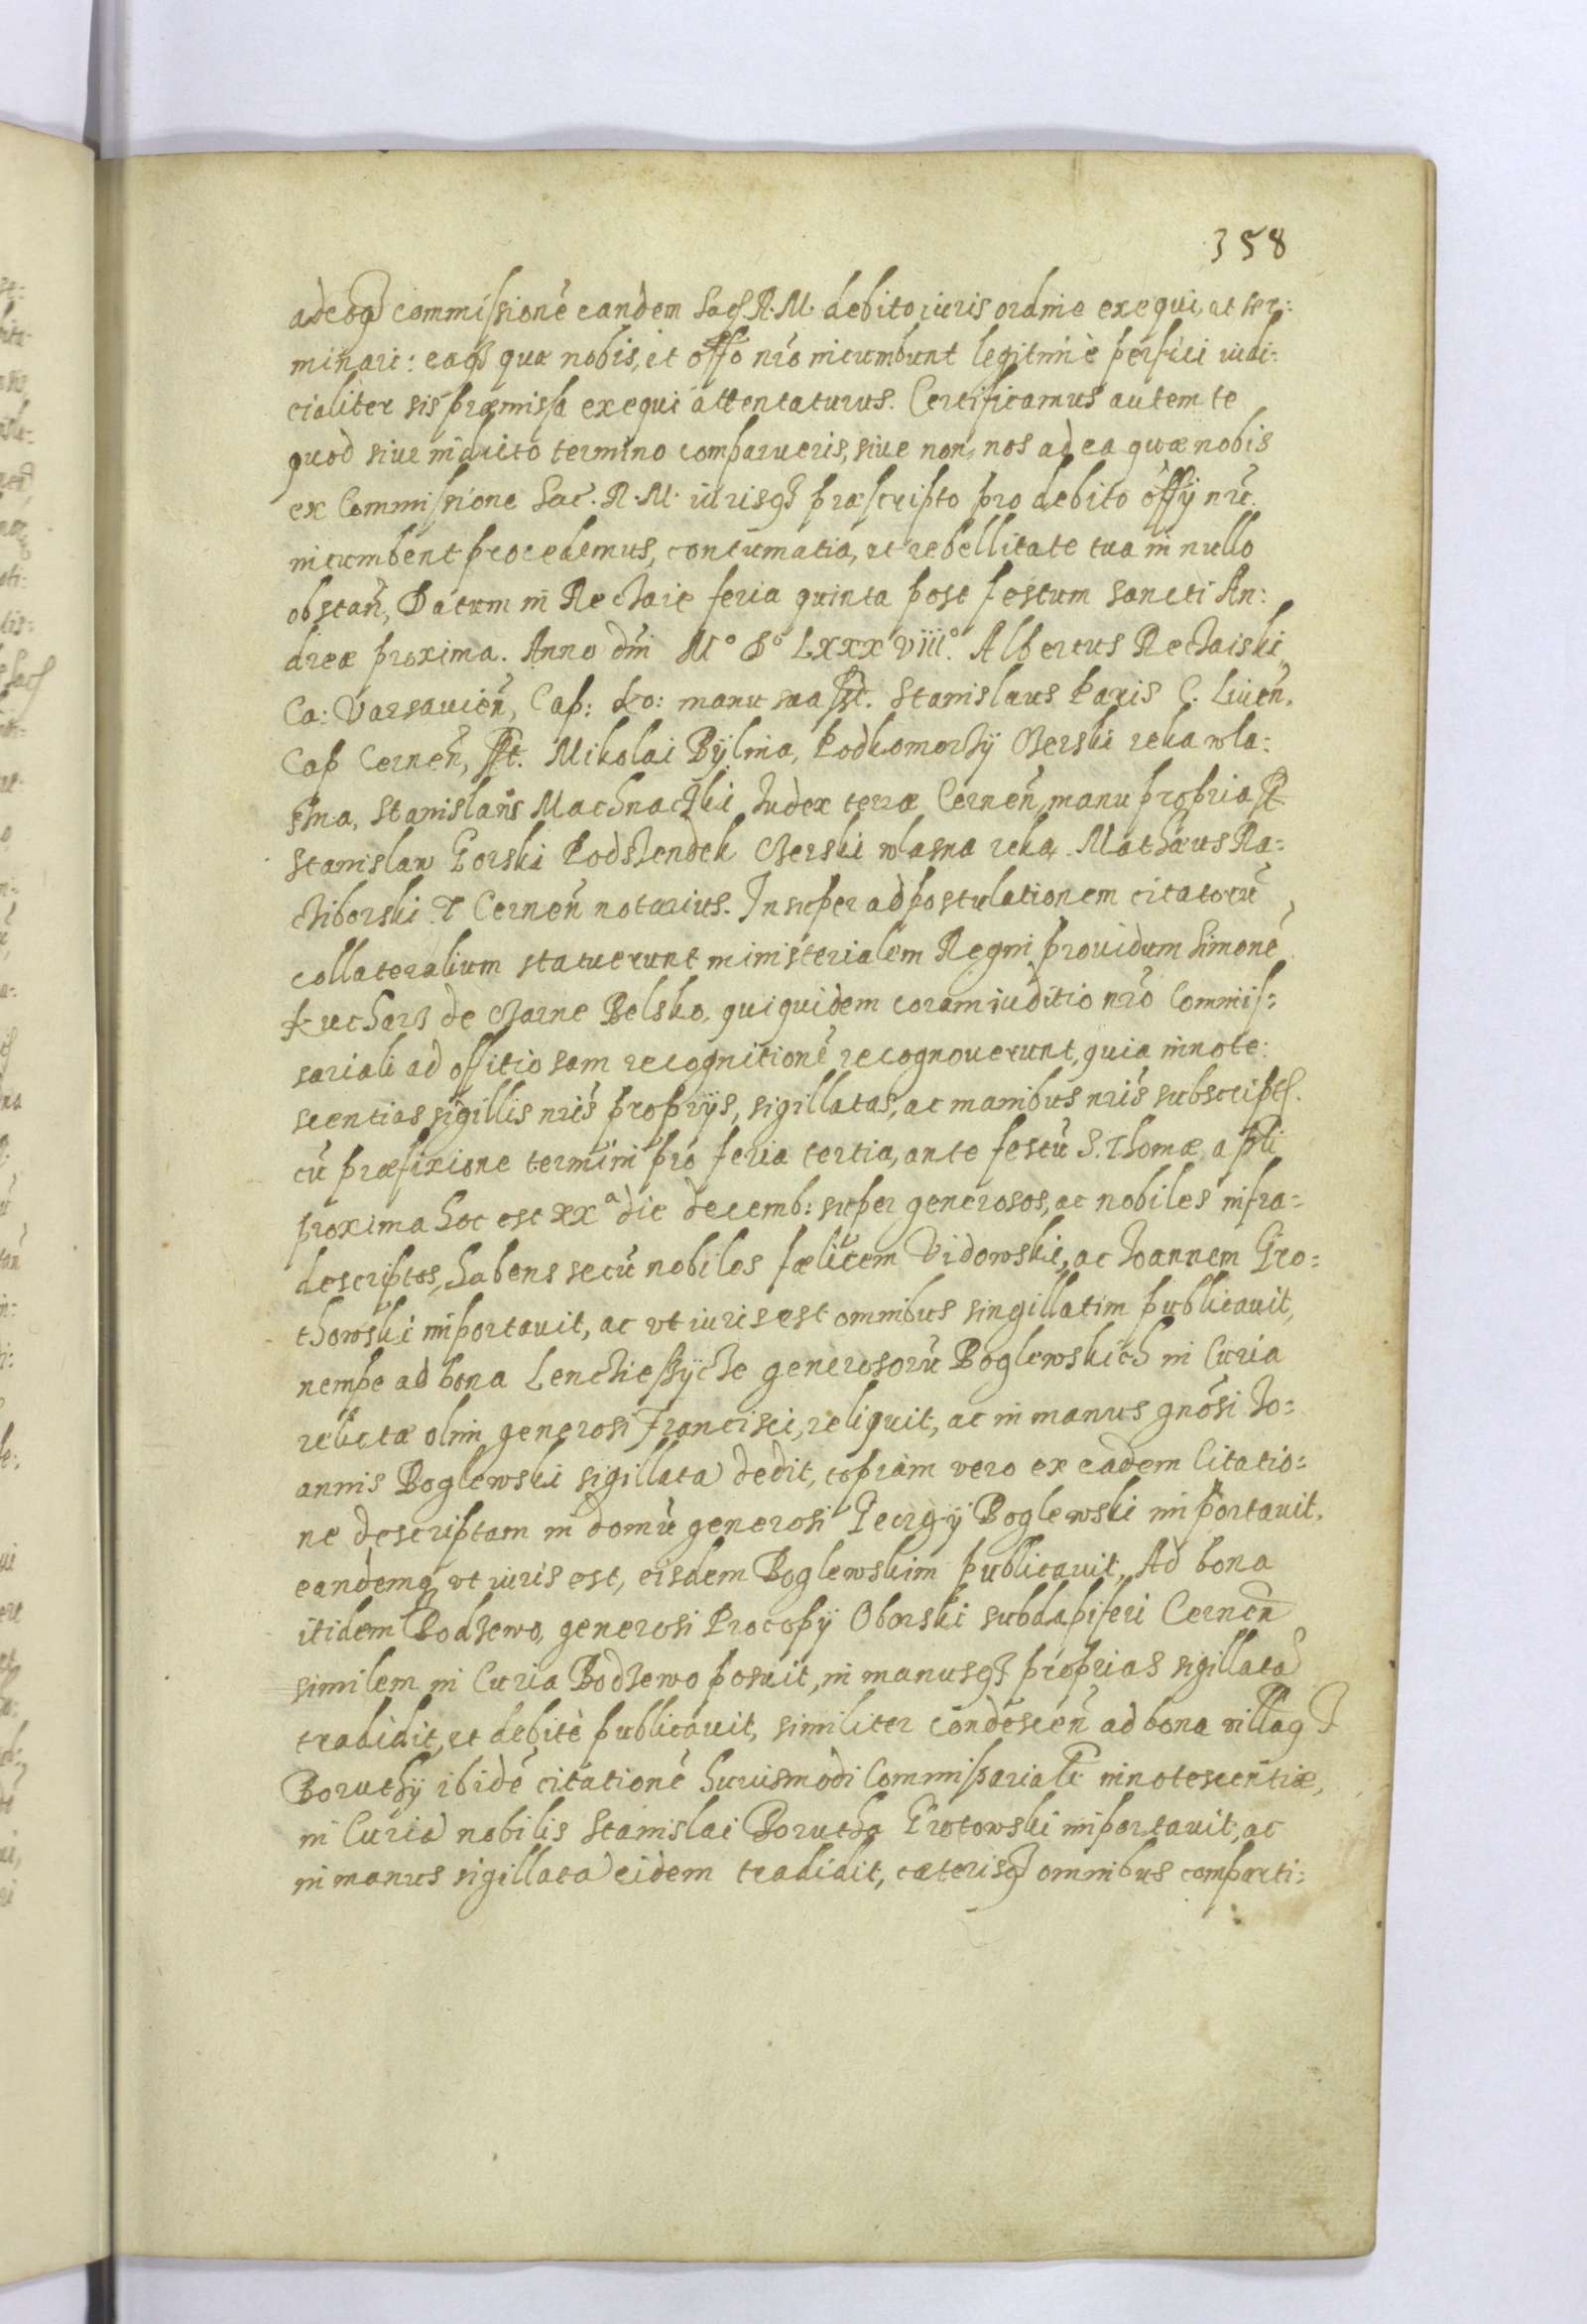 358
adeoq₃ commissionē eandem Sac. R. M. debito iuris ordine exequi, et ter:
minari: eaq₃ quæ nobis, et offo nr̄o incumbunt legitimè perfici iudi:
cialiter sis præmissa exequi attentaturus. Certificamus autem te
quod siue in dicto termino comparueris, siue non, nos ad ea quæ nobis
ex Commissione Sac. R. M. iurisq₃ præscripto pro debito offÿ nr̄i
incumbent procedemus, contumatia, et rebellitate tua in nullo
obstan̄, Datum in Rechaie feria quinta post festum sancti An:
dreæ proxima. Anno dm̄i M° D° LXXXVIII°. Albertus Rechaiski
Ca: Varsauien̄, Cap: Ko: manu sua sst. Stanislaus Paris C. Liuen̄.
Cap Cernen̄, sst. Mikolai Bÿlina, Podkomorzÿ Czerski reka wla:
sna, Stanislaus Machnaczki Iudex terræ Cernen̄ manu propria sst
Stanislaw Gorski Podsendek Czerski wlasna reka. Mathæus Ra:
cziborski T Cernen̄ notarius. Insuper ad postulationem citatorū
collateralium statuerunt ministerialem Regni prouidum Simonē
Kucharz de Czarne Belsko, qui quidem coram iuditio nr̄o Commis:
sariali ad offitiosam recognitionē recognouerunt, quia innote:
scentias sigillis nr̄is proprÿs, sigillatas, ac manibus nr̄is subscript.
cū præfixione termini pro feria tertia, ante festū S. Thomæ apli
proxima hoc est xxᵃ die decemb: super generosos, ac nobiles infra:
descriptos, habens secū nobiles fælicem Vidowski, ac Ioannem Gro:
thowski importauit, ac vt iuris est omnibus singillatim publicauit,
nempe ad bona Lenchessÿcze generosorū Boglewskich in Curia
relictæ olim generosi Francisci, reliquit, ac in manus gnōsi Io:
annis Boglewski sigillata dedit, copiam vero ex eadem Citatio:
ne descriptam in domū generosi Georgÿ Boglewski importauit,
eandemq₃ vt iuris est, eisdem Boglewskim publicauit, Ad bona
itidem Bodzewo, generosi Procopÿ Oborski subdapiferi Cernen̄
similem in Curia Bodzewo posuit, in manusq₃ proprias sigillata
tradidit, et debitè publicauit, similiter condescen̄ ad bona villaq₃
Boruthÿ ibidē citationē huiusmodi Commissarialē innotescentiæ,
in Curia nobilis Stanislai Borutha Grotowski importauit, ac
in manus sigillata eidem tradidit, cæterisq₃ omnibus comparti: